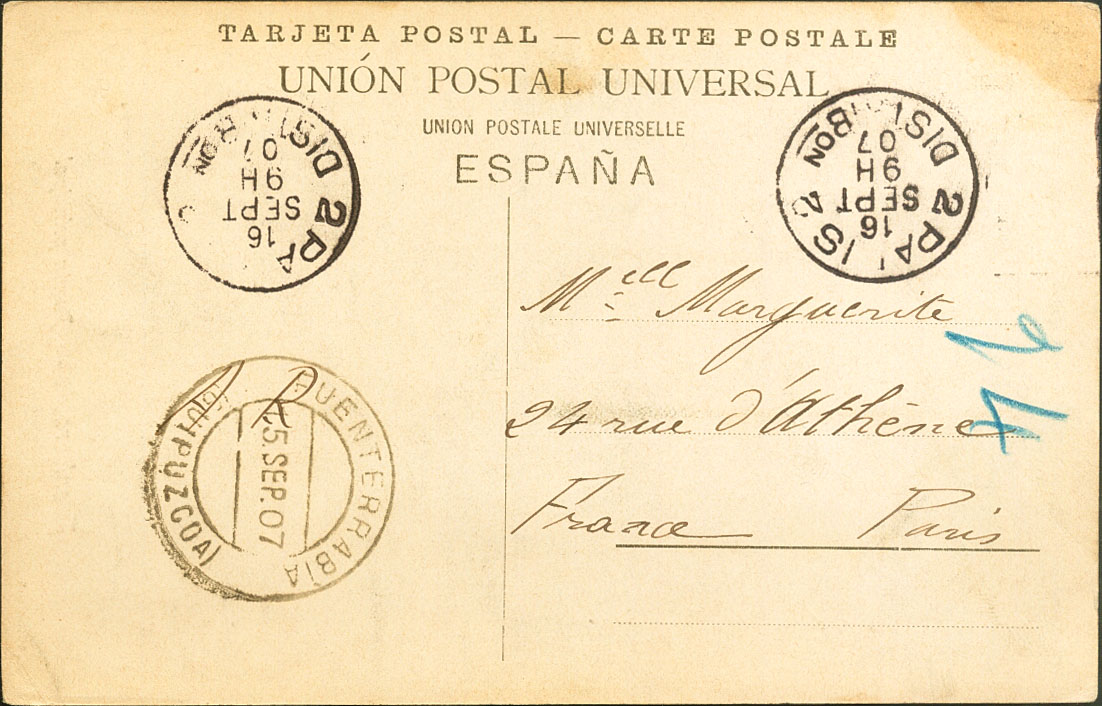 TARJETA POSTAL — CARTE POSTALE
UNIÓN POSTAL UNIVERSAL
UNION POSTALE UNIVERSELLE
ESPAÑA
2 PA
DISTRIBON
16
SEPT
9H
07
2 PARIS 2
DISTRIBON
16
SEPT
9H
07
Mell Marguerite
24 rue d'Athène
France Paris
R
FUENTERRABIA
15.SEP.07
(GUIPÚZCOA)